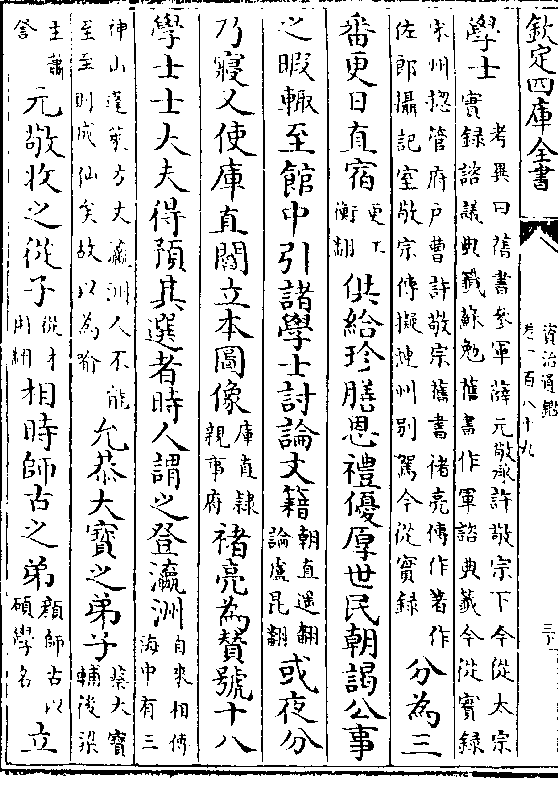 欽定四庫全書
資治通鑑
卷一百八十九
三下
學士考異曰舊書參軍薛元敬承許敬宗下今從太宗
實録諮議典籖蘇勉舊書作軍諮典籖今從實録
宋州總管府戸曹許敬宗舊書褚亮傳作著作
佐郎攝記室敬宗傳擬漣州别駕今從實録分為三
番更日直宿更工衡翻供給珍膳恩禮優厚世民朝謁公事
之暇輙至館中引諸學士討論文籍朝直遥翻論盧昆翻或夜分
乃寢又使庫直閻立本圖像庫直隸親事府褚亮為賛號十八
學士士大夫得預其選者時人謂之登瀛洲自來相傳海中有三
神山蓬萊方丈瀛洲人不能至至則成仙矣故以為喻允恭大寶之弟子蔡大寶輔後梁
主蕭詧元敬收之從子從才用翻相時師古之弟顔師古以碩學名立